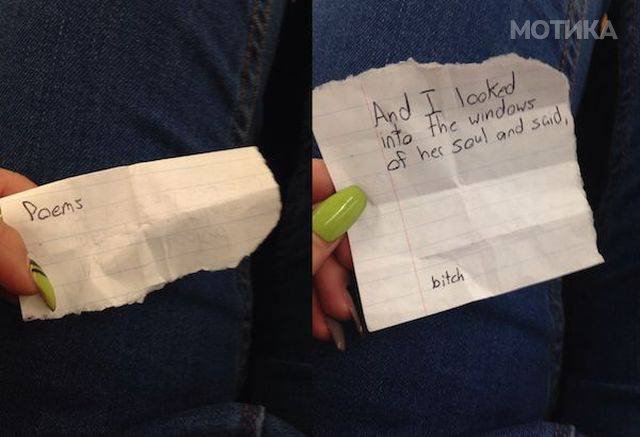 Poems
МОТИКА
And I looked
into the windows
of her soul and said,
bitch